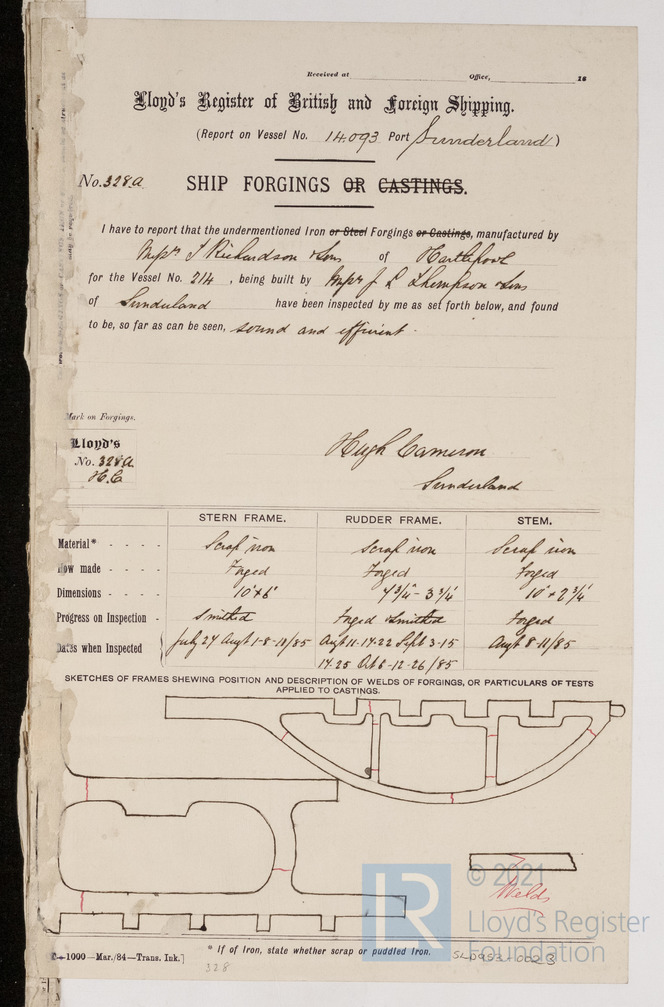 Received at Office, 18
Lloyd's Register of British and Foreign Shipping.
(Report on Vessel No. 14093 Port Sunderland)
No. 328a SHIP FORGINGS OR CASTINGS.
I have to report that the undermentioned Iron or Steel Forgings or Castings, manufactured by
Messrs T Richardson & Sons of Hartlepool
for the Vessel No. 214, being built by Messrs J L Thompson & Sons
of Sunderland have been inspected by me as set forth below, and found
to be, so far as can be seen, sound and efficient.
Mark on Forgings.
Lloyd's
No. 328a
H.C.
Hugh Cameron
Sunderland
STERN FRAME. RUDDER FRAME. STEM.
Material* - - - - Scrap iron Scrap iron Scrap iron
How made - - - - Forged Forged Forged
Dimensions - - - - 10" x 6" 3 1/4" 10" x 2 3/4"
Progress on Inspection - Smithed Forged & Smithed Forged
Dates when Inspected July 27 Augt 1-8-18/85 Augt 11-17-22 Sept 3-15 Augt 8-11/85
17-25 Oct 6-12-26/85
SKETCHES OF FRAMES SHEWING POSITION AND DESCRIPTION OF WELDS OF FORGINGS, OR PARTICULARS OF TESTS
APPLIED TO CASTINGS.
Welds
© 2021
LR Lloyd's Register
Foundation
—1000—Mar./84—Trans. Ink.]
* If of Iron, state whether scrap or puddled Iron.
328
SLD953-0023